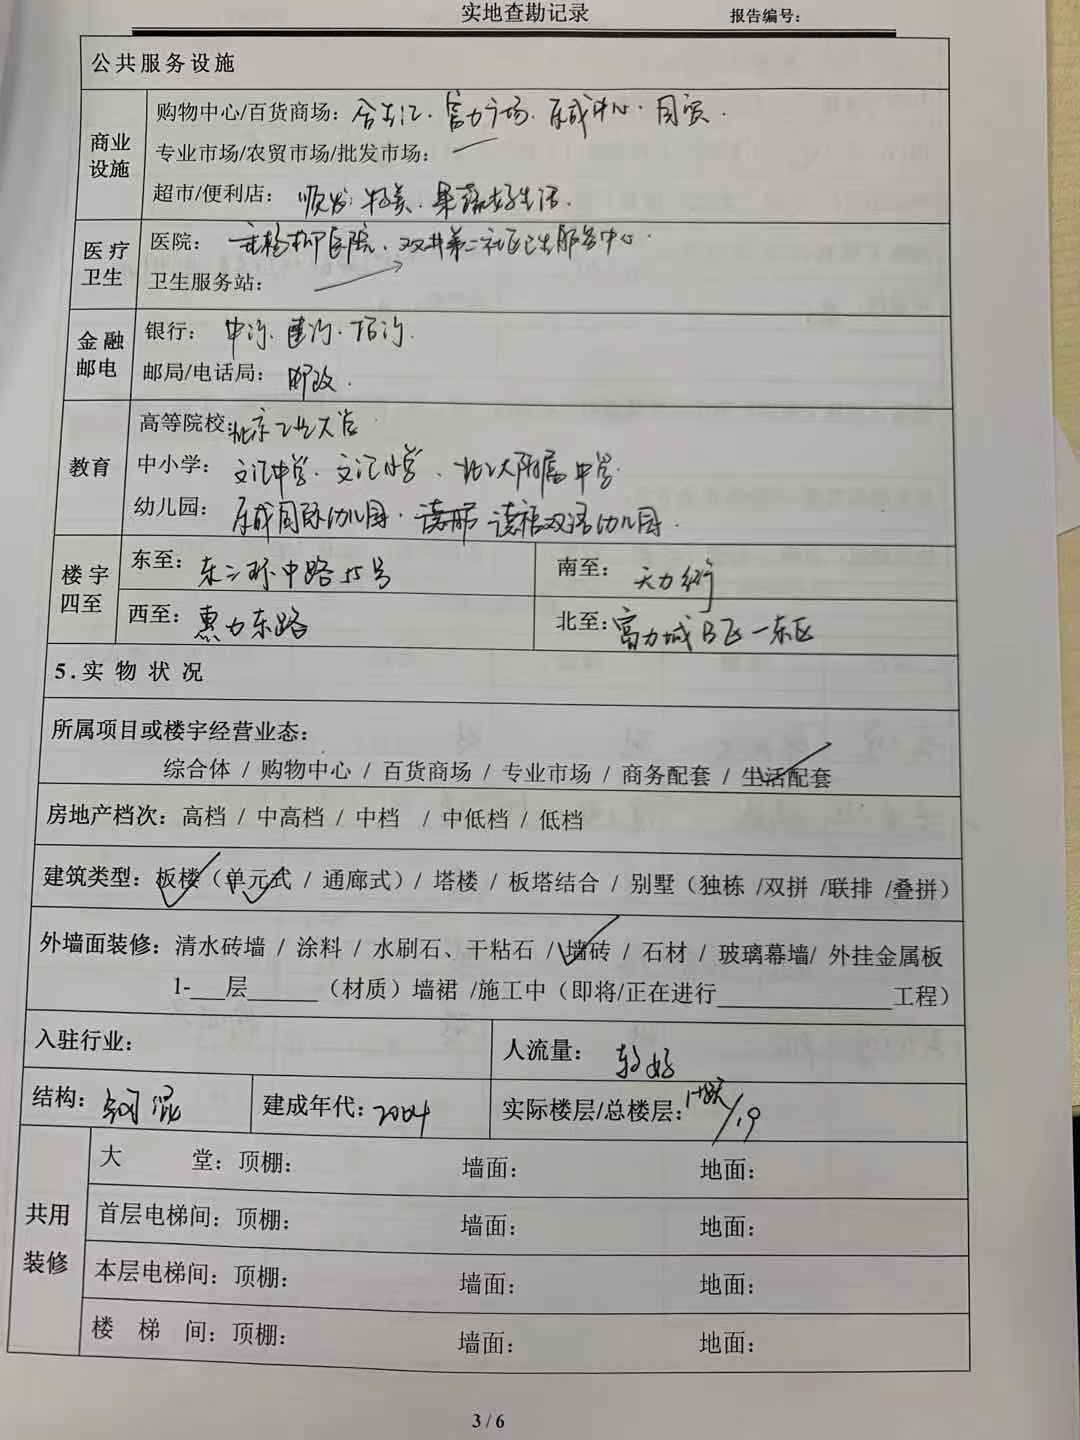 实地查勘记录 报告编号:
公共服务设施
商业设施
购物中心/百货商场: 合生汇. 富力广场. 乐成中心. 国贸.
专业市场/农贸市场/批发市场: —
超市/便利店: 顺发. 物美. 果蔬好生活.
医疗卫生
医院: 垂杨柳医院. 双井第二社区卫生服务中心.
卫生服务站:
金融邮电
银行: 中行. 建行. 招行.
邮局/电话局: 邮政.
教育
高等院校: 北京工业大学.
中小学: 文汇中学. 文汇小学. 北工大附属中学.
幼儿园: 乐成国际幼儿园. 双语幼儿园.
楼宇四至
东至: 东三环中路55号 南至: 天力街
西至: 惠力东路 北至: 富力城B区—东区
5.实物状况
所属项目或楼宇经营业态:
综合体 / 购物中心 / 百货商场 / 专业市场 / 商务配套 / 生活配套
房地产档次: 高档 / 中高档 / 中档 / 中低档 / 低档
建筑类型: 板楼(单元式 / 通廊式)/ 塔楼 / 板塔结合 / 别墅(独栋 /双拼 /联排 /叠拼)
外墙面装修: 清水砖墙 / 涂料 / 水刷石、干粘石 / 墙砖 / 石材 / 玻璃幕墙/ 外挂金属板
1-___层______(材质)墙裙 /施工中(即将/正在进行_______________工程)
入驻行业: 人流量: 较好
结构: 钢混 建成年代: 2004 实际楼层/总楼层: /19
共用装修
大 堂: 顶棚: 墙面: 地面:
首层电梯间: 顶棚: 墙面: 地面:
本层电梯间: 顶棚: 墙面: 地面:
楼 梯 间: 顶棚: 墙面: 地面:
3 / 6